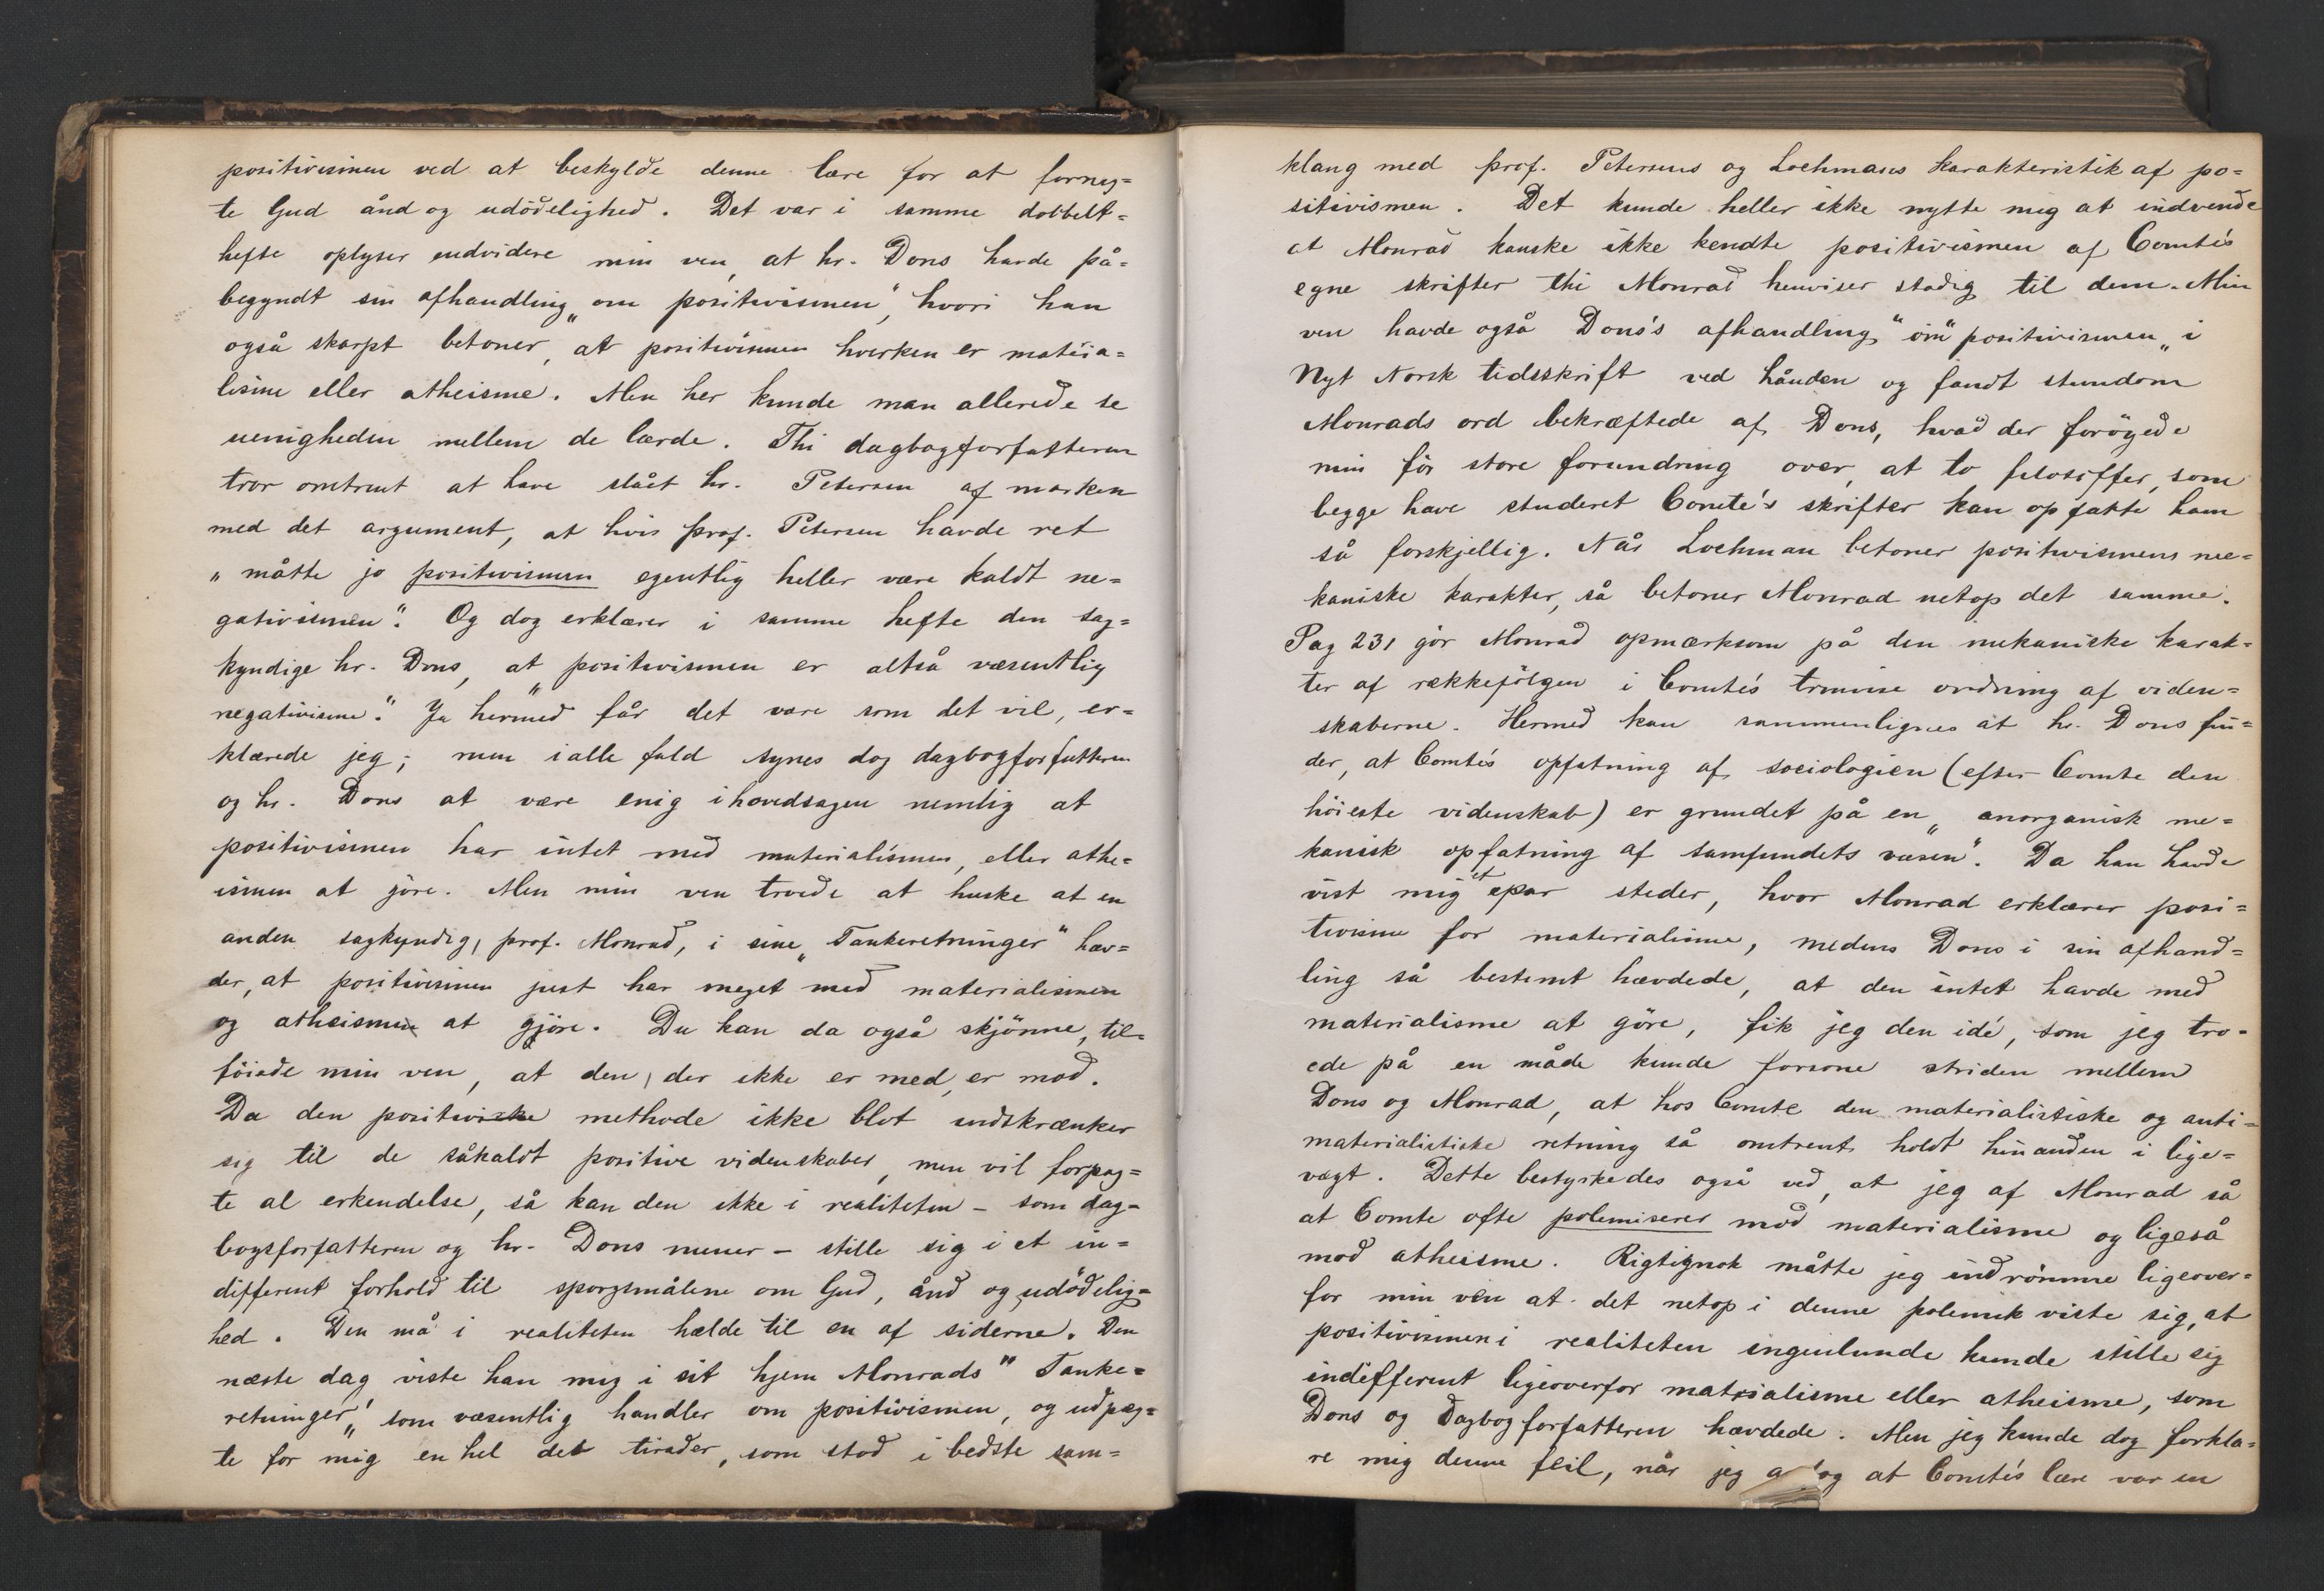 positivismen ved at beskylde denne lære for at forneg=
te Gud ånd og udödelighed. Det var i samme dobbelt=
hefte oplyser endvidere min ven, at hr. Dons havde på=
begyndt sin afhandling „om positivismen", hvori han
også skarpt betoner, at positivismen hverken er materia=
lisme eller atheisme. Men her kunde man allerede se
uenigheden mellem de lærde. Thi dagbogforfatteren
tror omtrent at have slået hr. Petersen af marken
med det argument, at hvis prof. Petersen havde ret
„måtte jo positivismen egentlig heller være kaldt ne=
gativismen". Og dog erklærer i samme hefte den sag=
kyndige hr. Dons, at „positivismen er altså væsentlig
negativisme". Ja hermed får det være som det vil, er=
klærede jeg; men ialle fald synes dog dagbogforfatteren
og hr. Dons at være enig i hovedsagen nemlig at
positivismen har intet med materialismen, eller athe=
ismen at jöre. Men min ven troede at huske at en
anden sagkyndig, prof. Monrad, i sine „Tankeretninger" hæv=
der, at positivismen just har meget med materialismen
og atheismen at gjöre. Du kan da også skjönne, til=
föiede min ven, at den, der ikke er med, er mod.
Da den positiviske methode ikke blot indskrænker
sig til de såkaldt positive videnskaber, men vil forpag=
te al erkendelse, så kan den ikke i realiteten – som dag=
bogsforfatteren og hr. Dons mener – stille sig i et in=
different forhold til sporgsmålene om Gud, ånd og udödelig=
hed. Den må i realiteten hælde til en af siderne. Den
næste dag viste han mig i sit hjem Monrads " Tanke=
retninger„ som væsentlig handler om positivismen, og udpeg=
te for mig en hel del tirader, som stod i bedste sam=
klang med prof. Petersens og Lochmans karakteristik af po=
sitivismen. Det kunde heller ikke nytte mig at indvende
at Monrad kanske ikke kendte positivismen af Comte's
egne skrifter thi Monrad henviser stadig til dem. Min
ven havde også Dons's afhandling "om" positivismen„ i
Nyt Norsk tidsskrift ved hånden og fandt stundom
Monrads ord bekræftede af Dons, hvad der forögede
min för store forundring over, at to filosoffer, som
begge have studeret Comte's skrifter kan opfatte ham
så forskjellig. Når Lochman betoner positivismens me=
kaniske karakter, så betoner Monrad netop det samme.
Pag 231 gör Monrad opmærksom på den mekaniske karak=
ter af rækkefölgen i Comte's trinvise ordning af viden=
skaberne. Hermed kan sammenlignes at hr. Dons fin=
der, at Comte's opfatning af sociologien (efter Comte den
höieste videnskab) er grundet på en „anorganisk me=
kanisk opfatning af samfundets væsen". Da han havde
vist mig et par steder, hvor Monrad erklærer posi=
tivisme for materialisme, medens Dons i sin afhand=
ling så bestemt hævdede, at den intet havde med
materialisme at göre, fik jeg den idé, som jeg tro=
ede på en måde kunde forsone striden mellem
Dons og Monrad, at hos Comte den materialistiske og anti=
materialistiske retning så omtrent holdt hinanden i lige=
vægt. Dette bestyrkedes også ved, at jeg af Monrad så
at Comte ofte polemiserer mod materialisme og ligeså
mod atheisme. Rigtignok måtte jeg indrömme ligeover=
for min ven at det netop i denne polemik viste sig, at
positivismen i realiteten ingenlunde kunde stille sig
indifferent ligeoverfor materialisme eller atheisme, som
Dons og Dagbogforfatteren hævdede. Men jeg kunde dog forkla=
re mig denne feil, når jeg og at Comte's lære var en